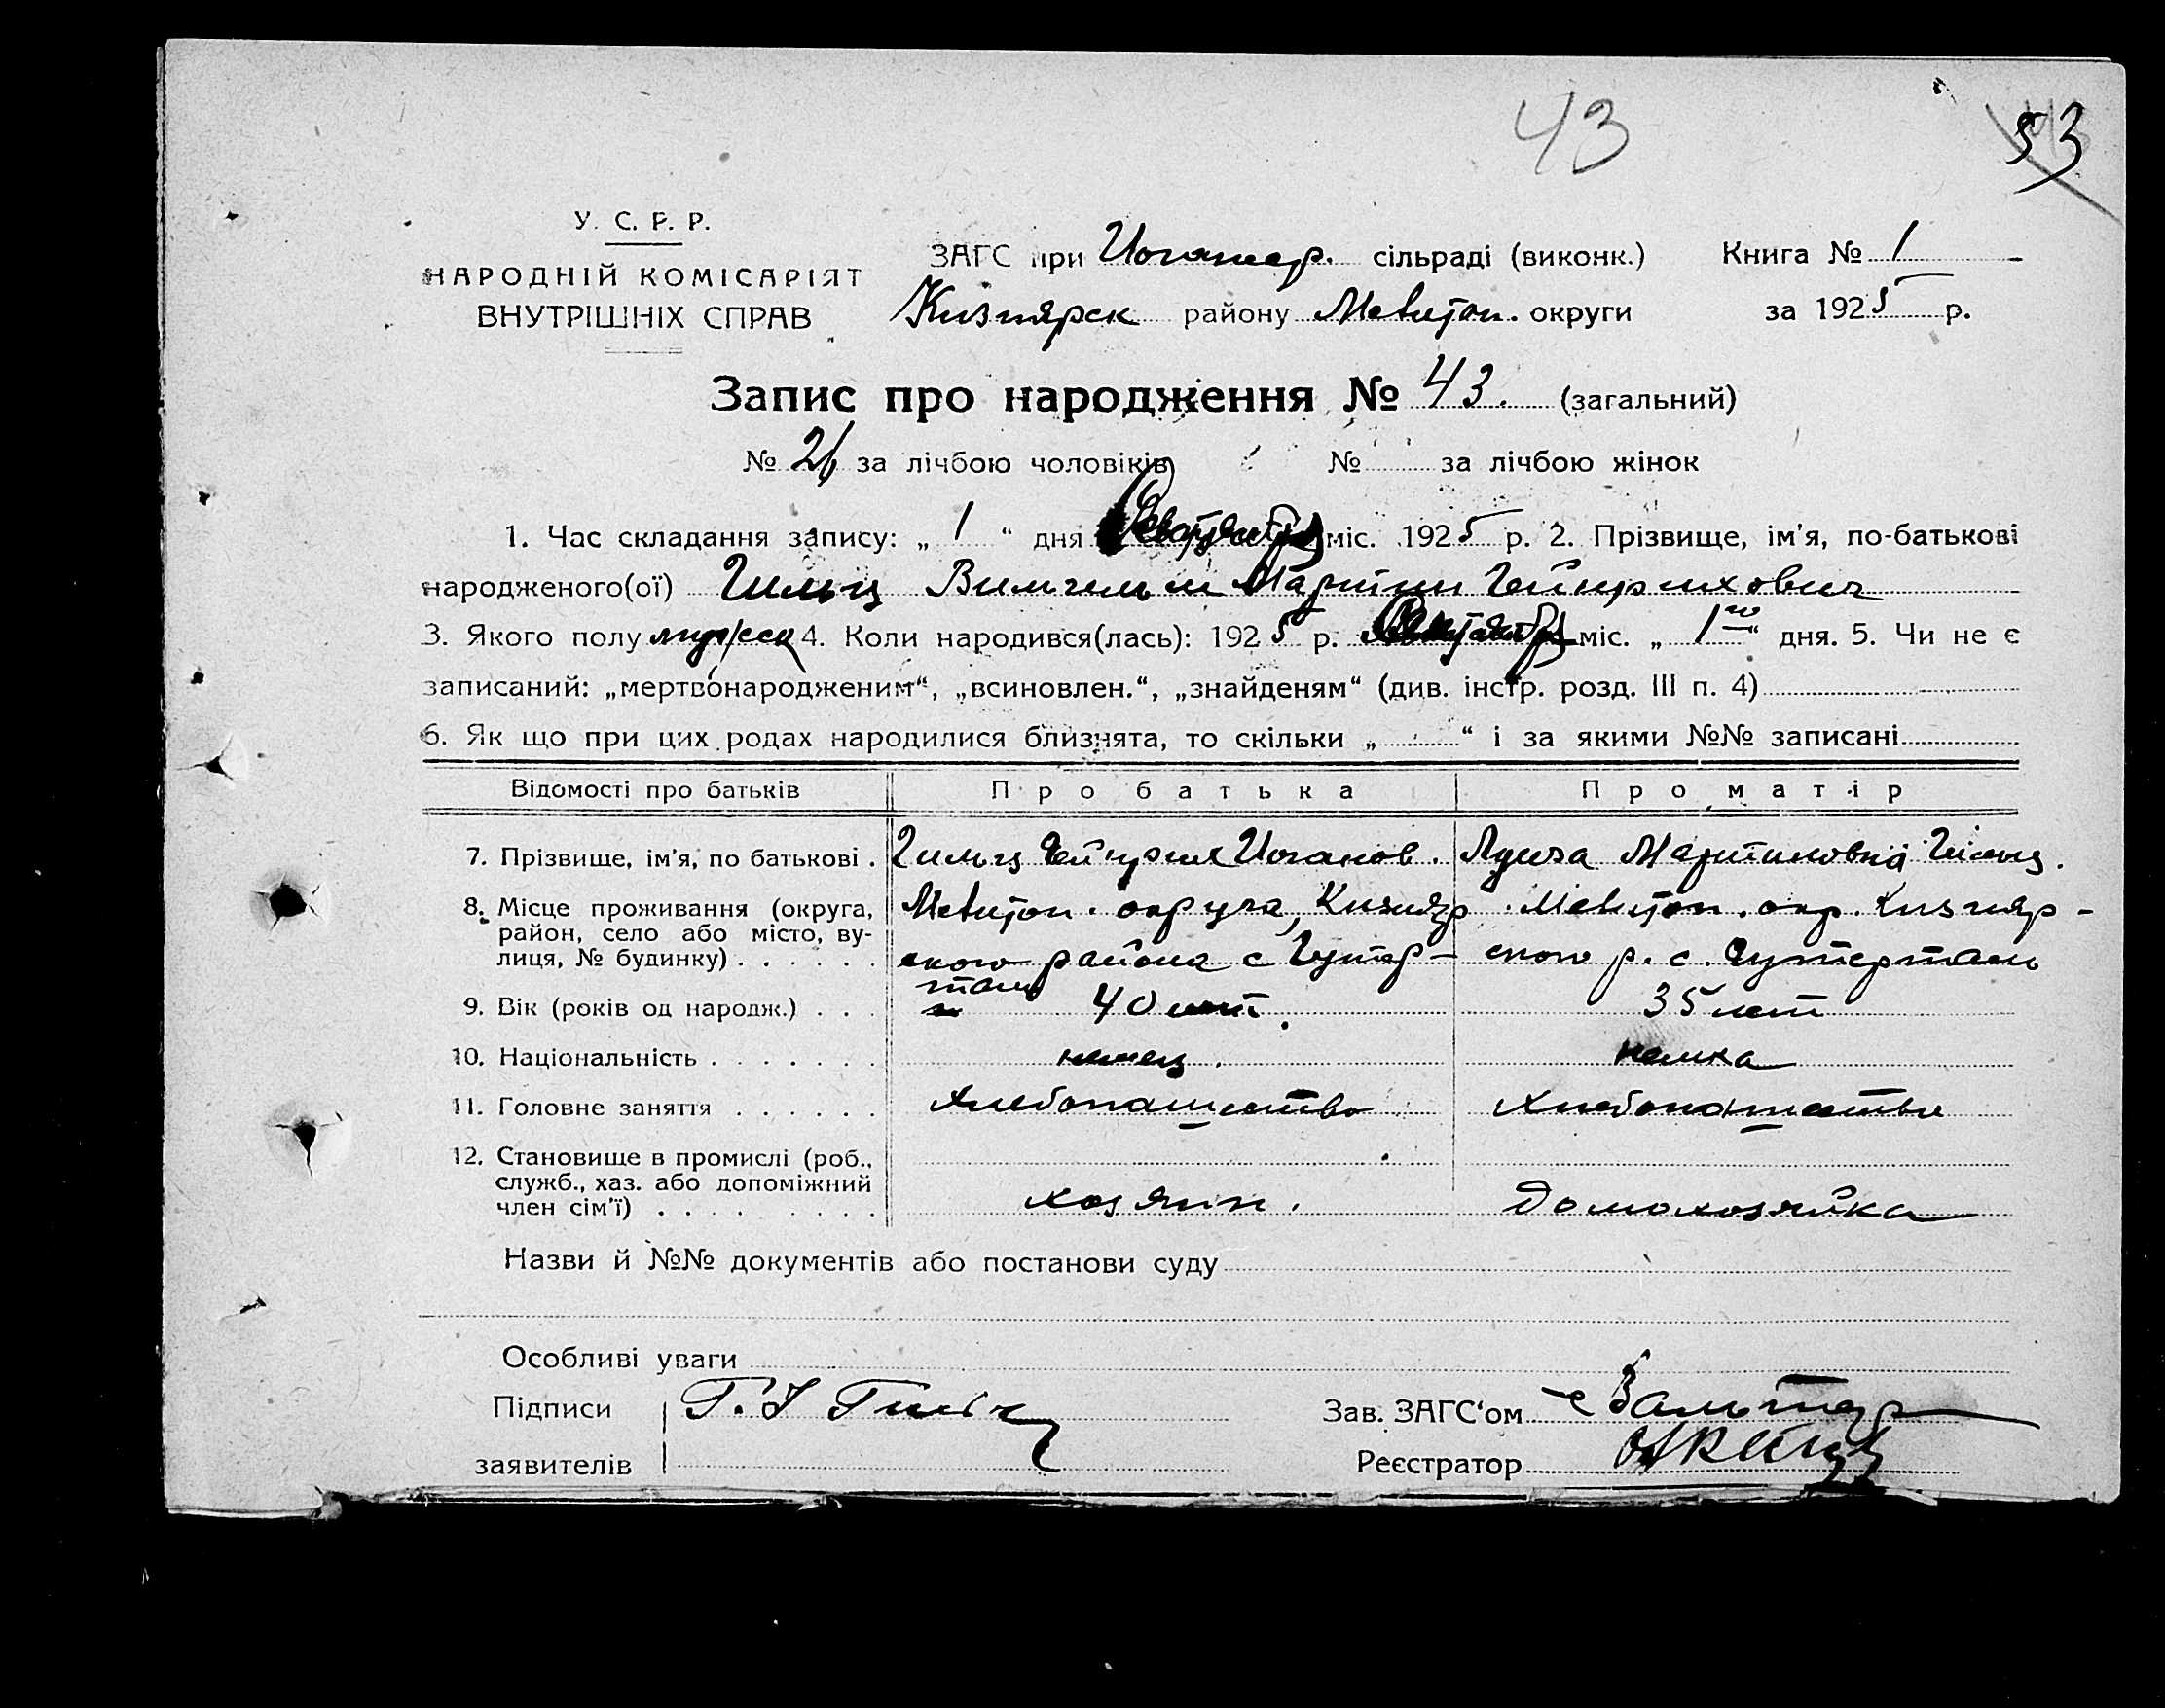 43
53
У. С. Р. Р.
НАРОДНІЙ КОМІСАРІЯТ
ВНУТРІШНІХ СПРАВ
ЗАГС при сільраді (виконк.) Книга № 1
Кизлярск району Мелитоп. округи за 1925 р.
Запис про народження № 43. (загальний)
№ 26 за лічбою чоловіків № за лічбою жінок
1. Час складання запису: „ 1 “ дня міс. 1925 р. 2. Прізвище, ім'я, по-батькові
народженого(ої) Гильц Вильгельм Мартин Гейнрихович
3. Якого полу мужск 4. Коли народився(лась): 1925 р. міс. „ 1го “ дня. 5. Чи не є
записаний: „мертвонародженим“, „всиновлен.“, „знайденям“ (див. інстр. розд. III п. 4)
6. Як що при цих родах народилися близнята, то скільки „ “ і за якими №№ записані
Відомості про батьків Про батька Про матір
7. Прізвище, ім'я, по батькові . Гильц Гейнрих Иоганов. Луиза Мартиновна Гильц.
8. Місце проживання (округа, район, село або місто, вулиця, № будинку) . . . . . . Мелитоп. округа, Кизляр
ского района с Гутер-
таль
Мелитоп. окр. Кизляр-
ского р. с. Гутерталь
9. Вік (років од народж.) . . . 40 лет. 35 лет
10. Національність . . . . . . . немец. немка
11. Головне заняття . . . . . . Хлебопашество Хлебопашество
12. Становище в промислі (роб., служб., хаз. або допоміжний член сім'ї) . . . . . . . . . хозяин. домохозяйка
Назви й №№ документів або постанови суду
Особливі уваги
Підписи Г. І Зав. ЗАГС'ом Вальтер
заявителів Реєстратор